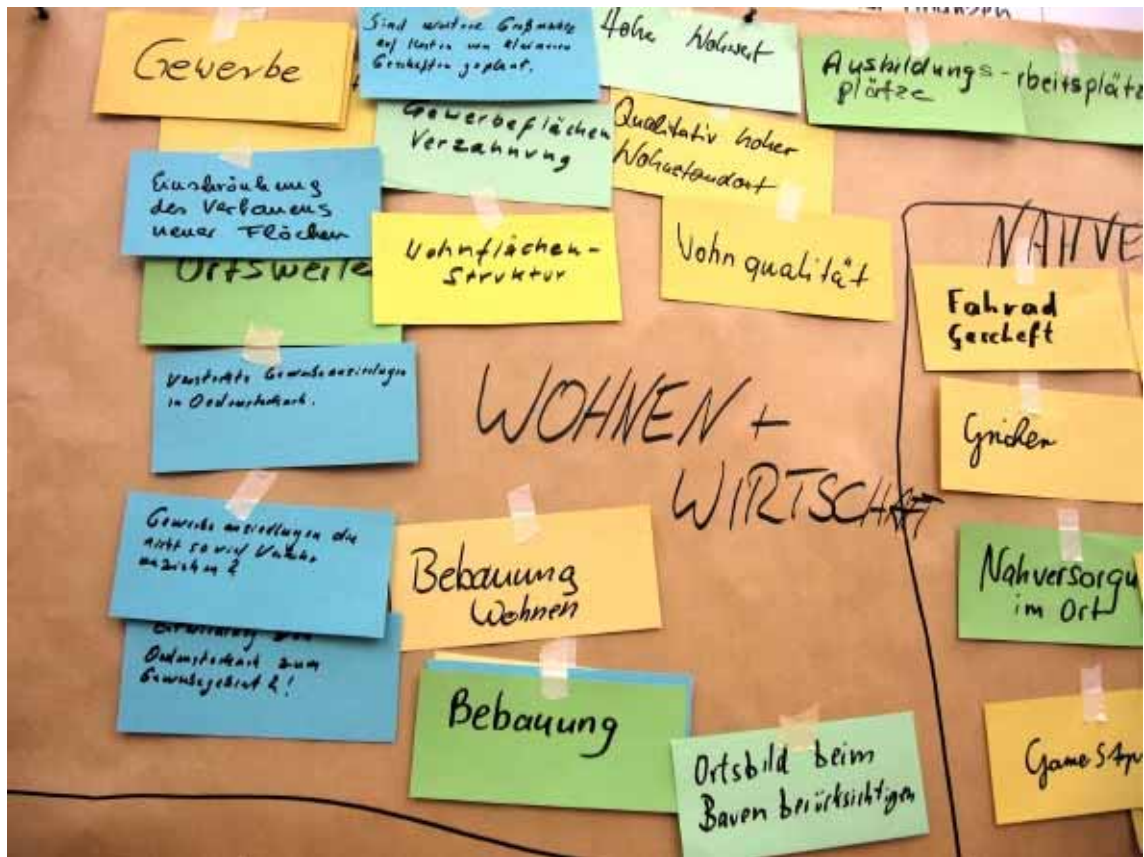 Finanzen
Gewerbe
Sind weitere Großmärkte
auf Kosten von kleineren
Geschäften geplant.
Hoher Wohnwert
Ausbildungs-
plätze
rbeitsplätze
Gewerbeflächen
Verzahnung
Qualitativ hoher
Wohnstandort
Einschränkung
des Verbauens
neuer Flächen
Ortsweite
Wohnflächen-
Struktur
Wohnqualität
NAHVE
Fahrad
Gescheft
Verstärkte Gewerbeansiedlungen
in
WOHNEN +
WIRTSCHAFT
Gricher
Gewerbeansiedlungen die
nicht so viel Verkehr
anziehen?
Bebauung
Wohnen
Nahversorgu
im Ort
zum
Gewerbegebiet?!
Bebauung
Ortsbild beim
Bauen berücksichtigen
Game Stop